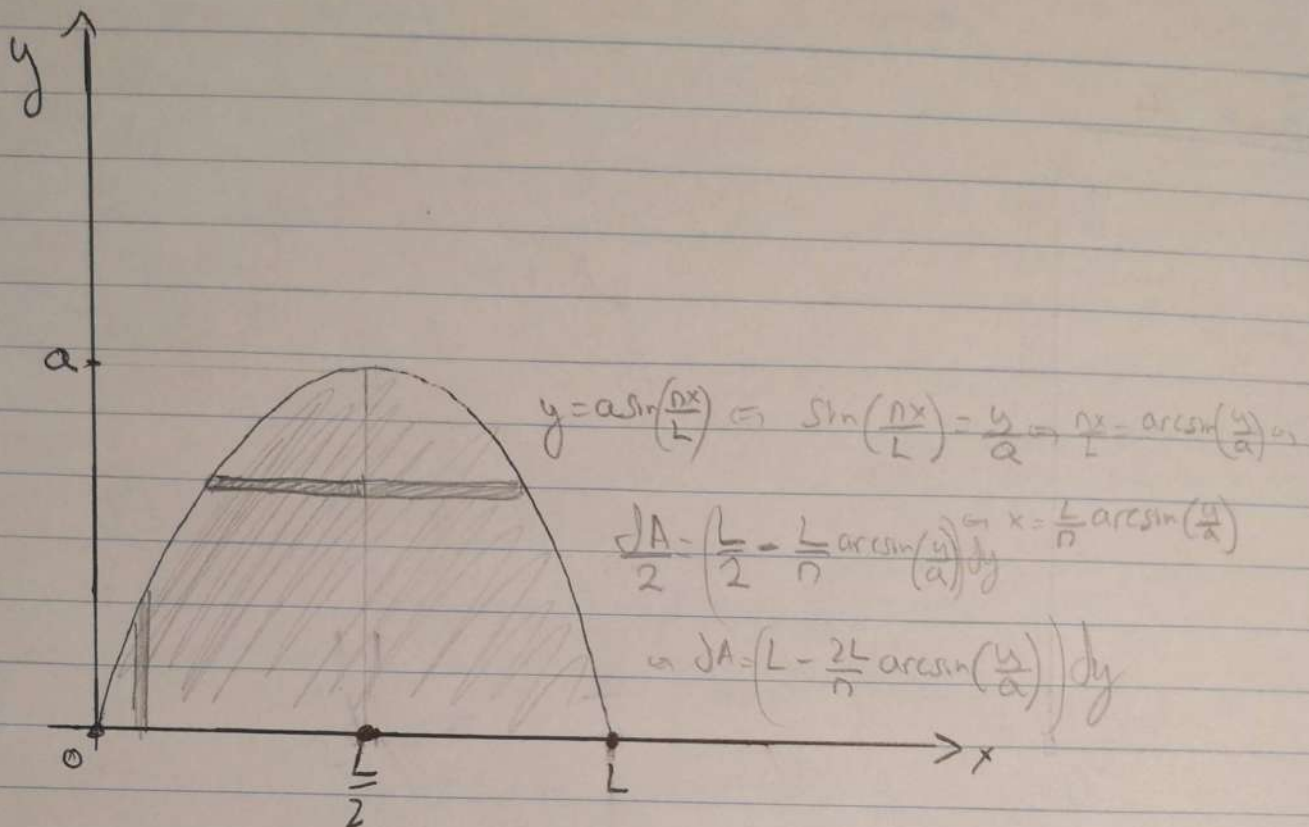 y
a
y = a sin(πx/L) ⇔ sin(πx/L) = y/a ⇔ πx/L = arcsin(y/a) ⇔
⇔ x = L/π arcsin(y/a)
dA/2 = (L/2 - L/π arcsin(y/a)) dy
⇔ dA = (L - 2L/π arcsin(y/a)) dy
0
L/2
L
x